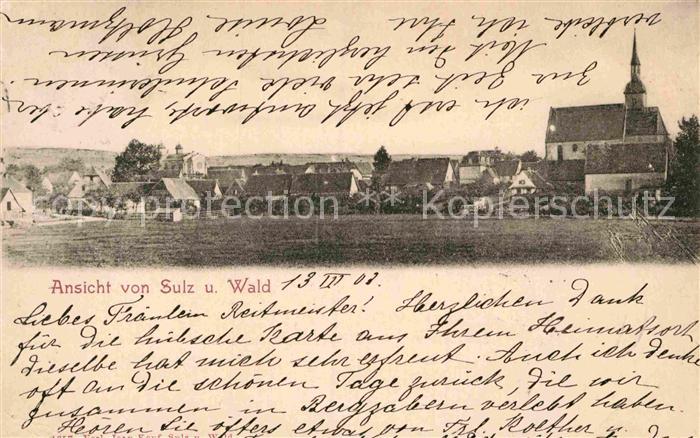 ich erst jetzt antworte, hatte der
Zeit sehr viele
Mit den herzlichsten Grüssen
verbleibe ich Ihre
Louise Holzmann
** copyright protection ** Kopierschutz **
Ansicht von Sulz u. Wald 13 III 03.
Liebes Fräulein Reitmeister! Herzlichen Dank
für die hübsche Karte aus Ihrem Heimatsort
dieselbe hat mich sehr erfreut. Auch ich denke
oft an die schönen Tage zurück, die wir
zusammen in Bergzabern verlebt haben.
Hören Sie öfters etwas von Frl. Koether u.
Sulz u. Wald